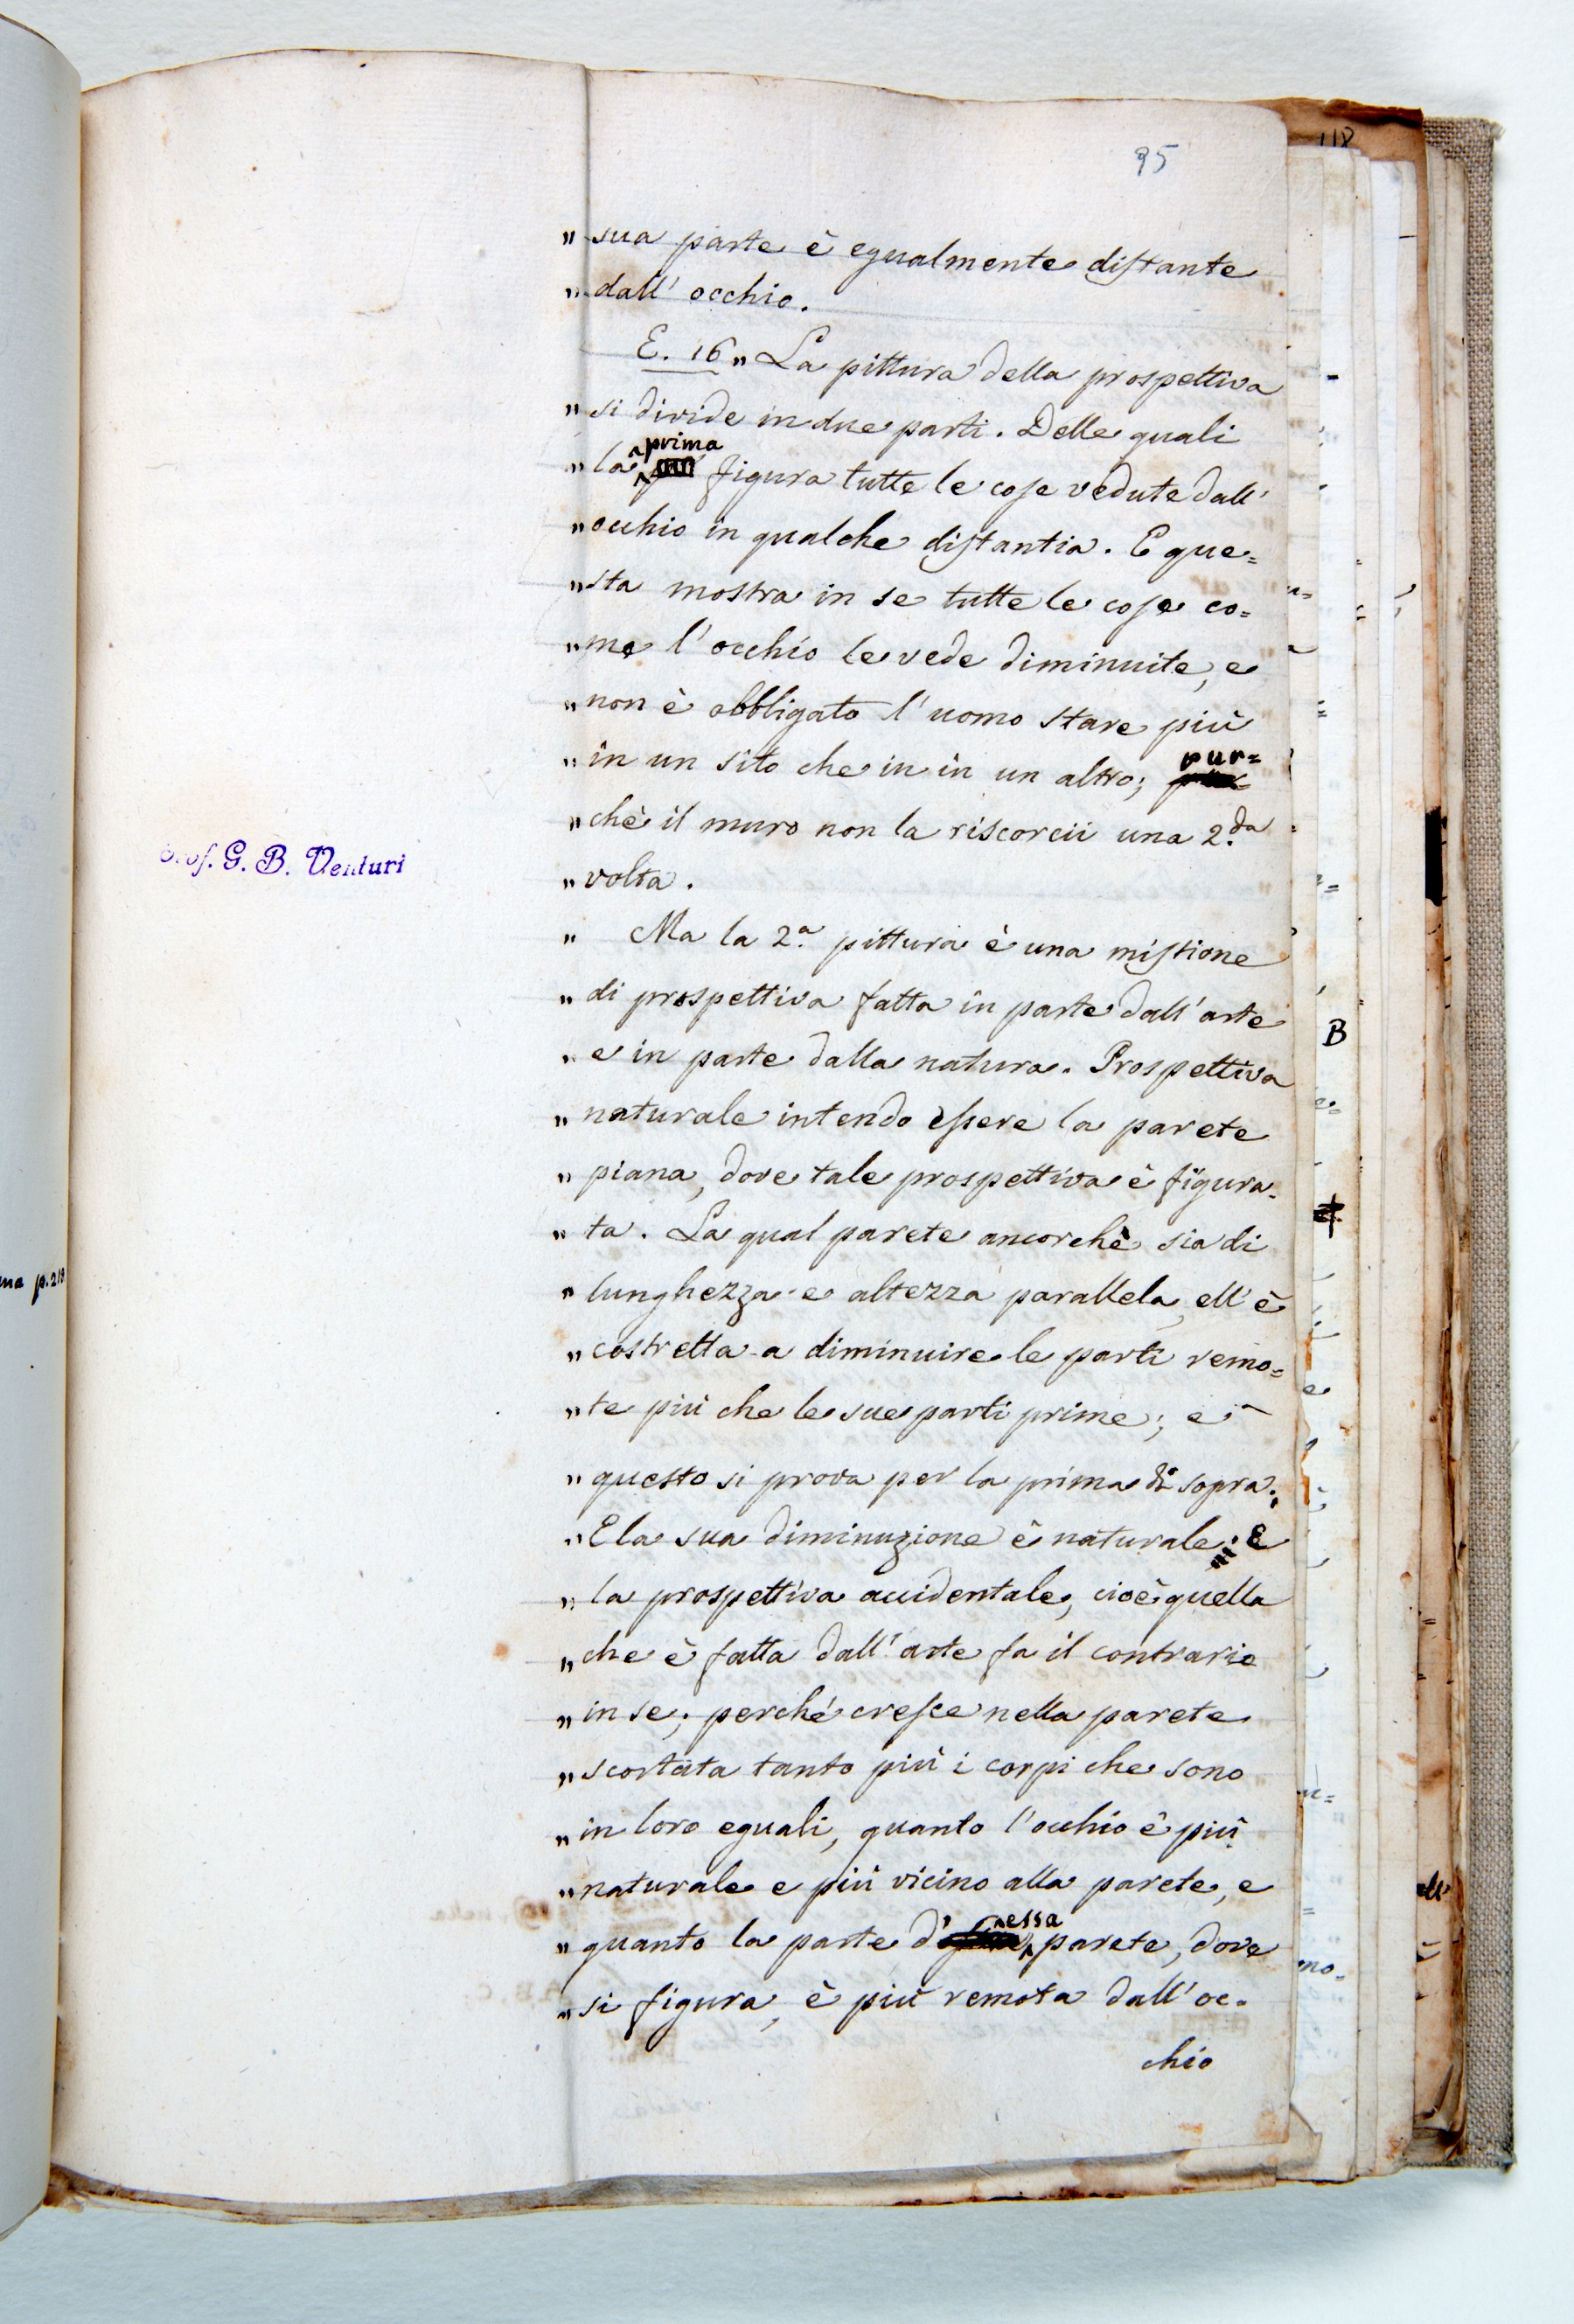 95
118
„ sua parte è egualmente distante
„ dall' occhio.
E. 16 „ La pittura della prospettiva
„ si divide in due parti. Delle quali
„ la prima figura tutte le cose vedute dall'
„ occhio in qualche distantia. E que=
„ sta mostra in se tutte le cose co=
„ me l'occhio le vede diminuite, e
„ non è obbligato l'uomo stare più
„ in un sito che in in un altro; pur=
„ chè il muro non la riscorcii una 2.da
„ volta.
„ Ma la 2.a pittura è una mistione
„ di prospettiva fatta in parte dall'arte
„ e in parte dalla natura. Prospettiva
„ naturale intendo essere la parete
„ piana, dove tale prospettiva è figura=
„ ta. La qual parete ancorchè sia di
„ lunghezza e altezza parallela, ell'è
„ costretta a diminuire le parti remo=
„ te più che le sue parti prime; e
„ questo si prova per la prima di sopra;
„ E la sua diminuzione è naturale: E
„ la prospettiva accidentale, cioè quella
„ che è fatta dall'arte fa il contrario
„ in se; perché cresce nella parete
„ scortata tanto più i corpi che sono
„ in loro eguali, quanto l'occhio è più
„ naturale e più vicino alla parete, e
„ quanto la parte d'essa parete, dove
„ si figura, è più remota dall'oc=
chio
Prof. G. B. Venturi
ma p. 219
B